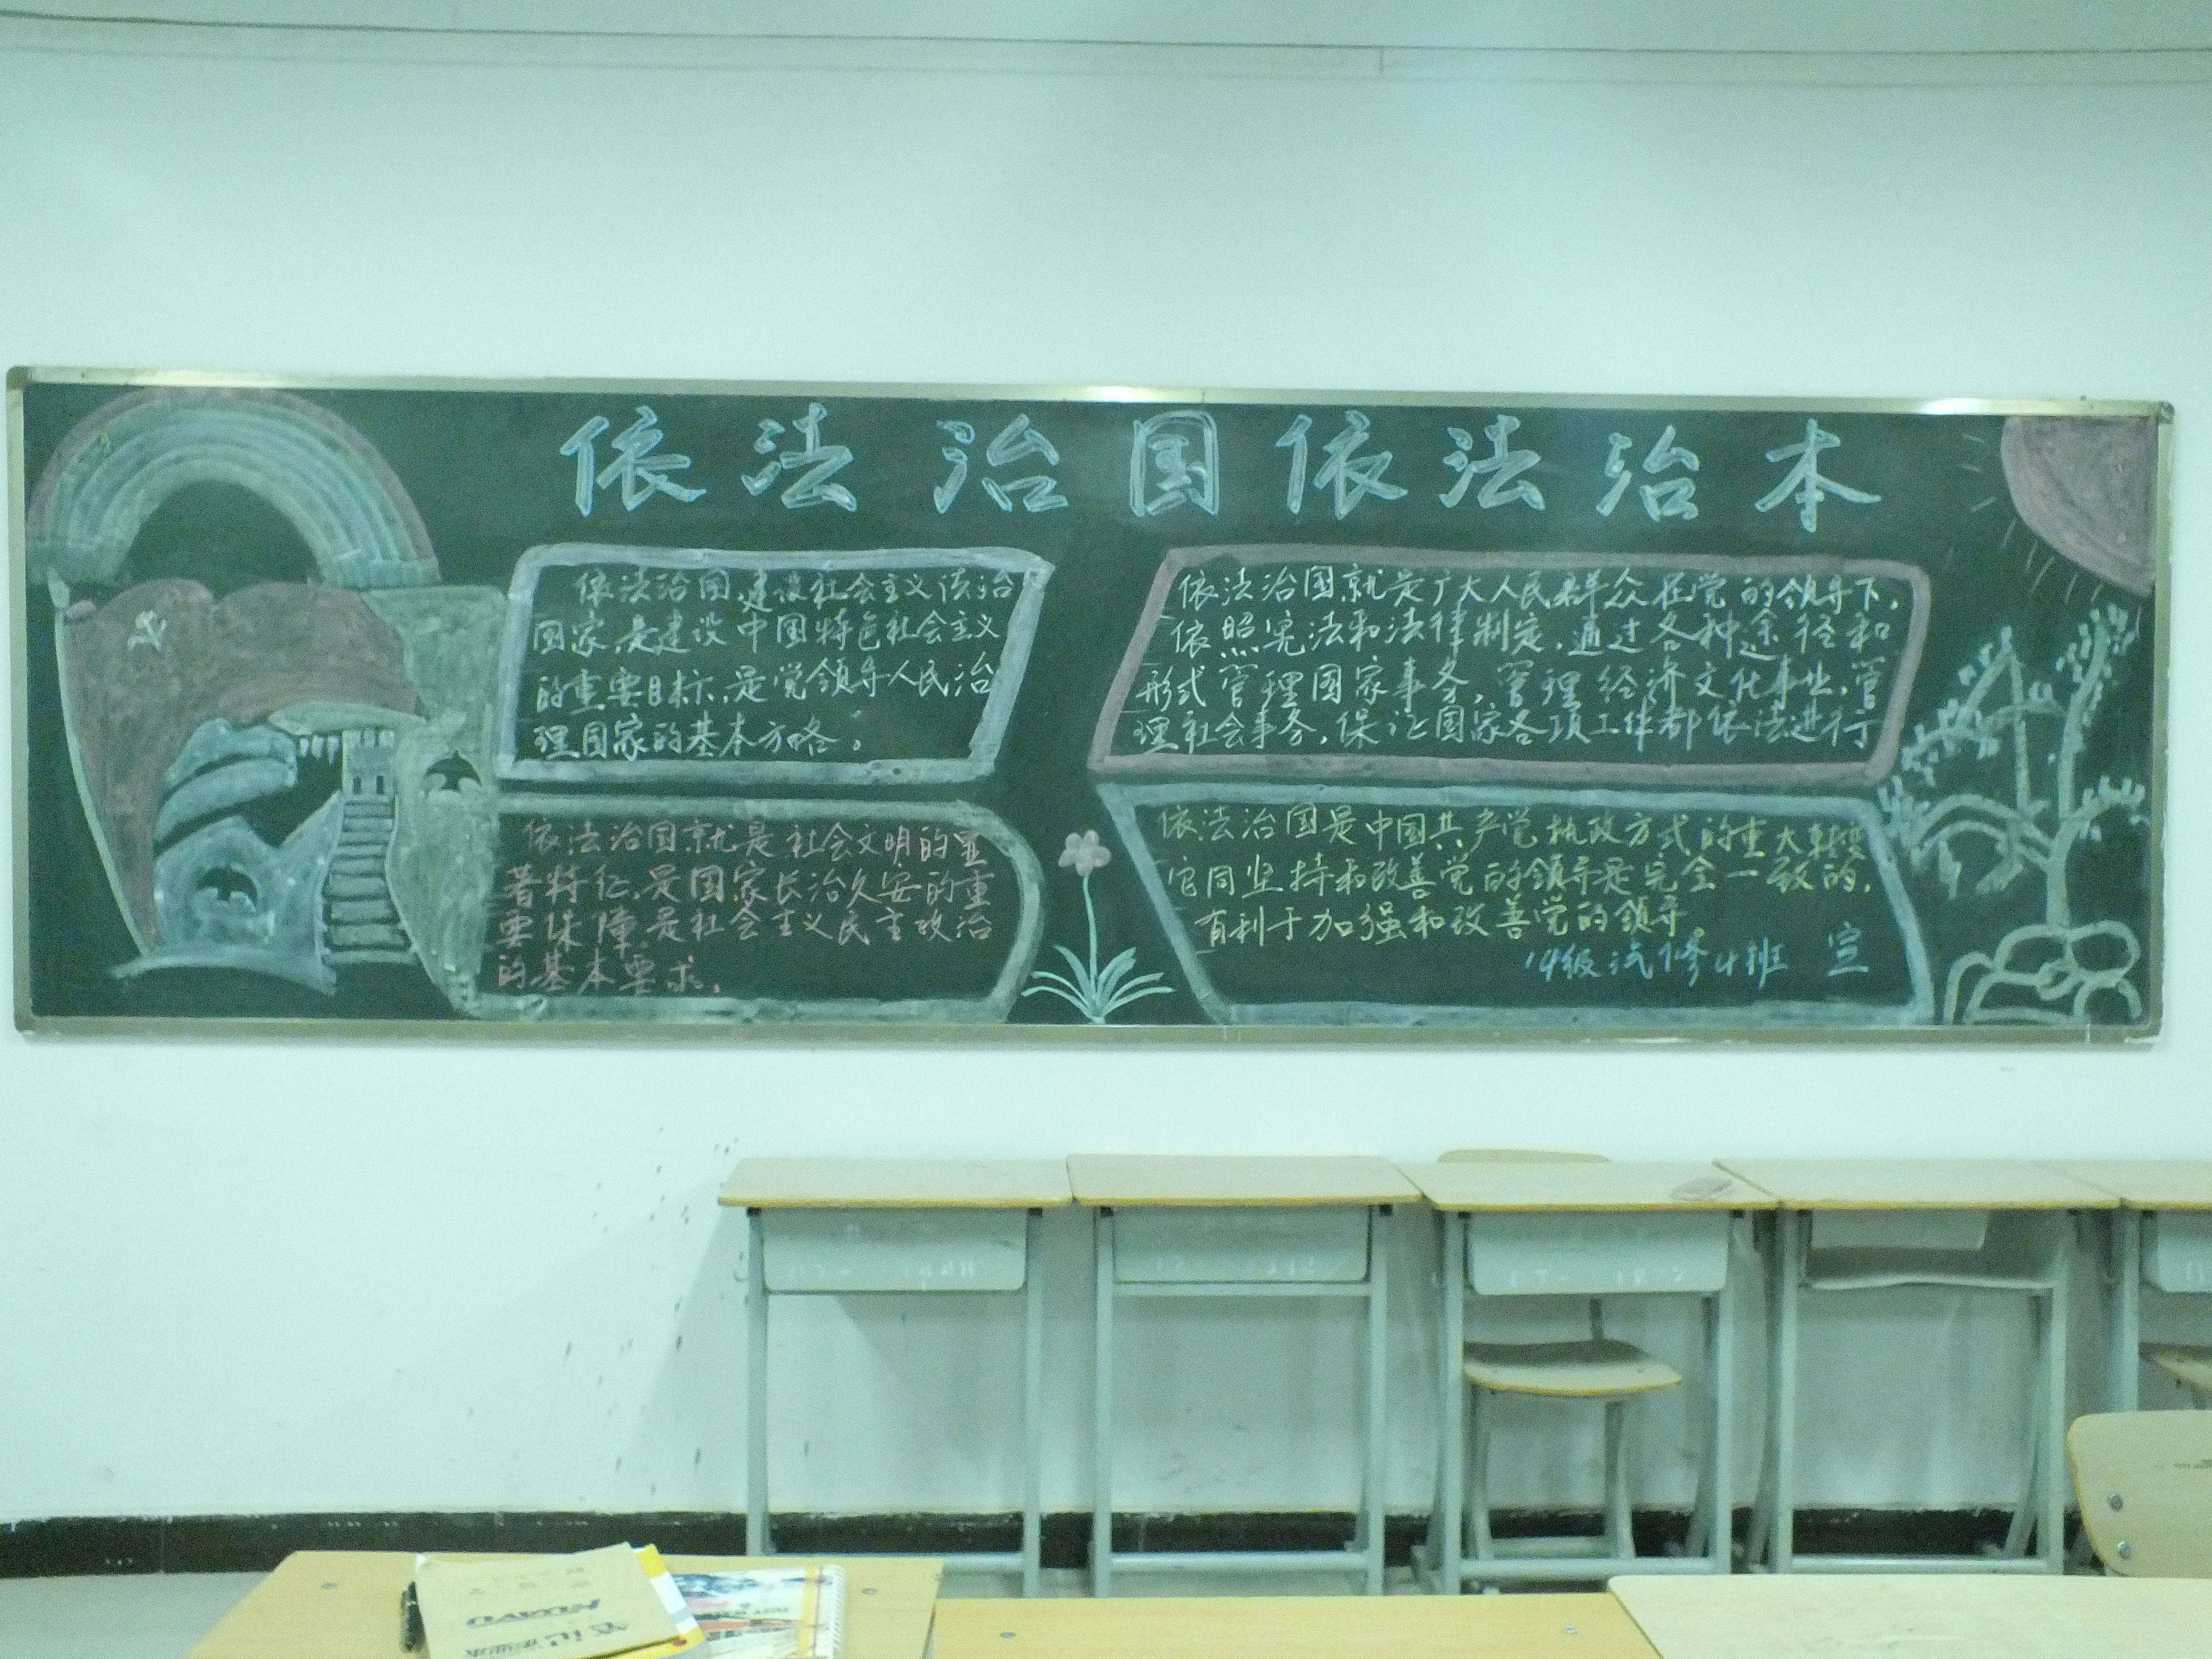 依法治国依法治本
依法治国,建设社会主义法治
国家,是建设中国特色社会主义
的重要目标,是党领导人民治
理国家的基本方略。
依法治国就是社会文明的显
著特征,是国家长治久安的重
要保障,是社会主义民主政治
的基本要求。
依法治国就是广大人民群众在党的领导下,
依照宪法和法律制定,通过各种途径和
形式管理国家事务,管理经济文化事业,管
理社会事务,保证国家各项工作都依法进行
依法治国是中国共产党执政方式的重大转变
它同坚持和改善党的领导是完全一致的,
有利于加强和改善党的领导。
14级汽修4班 宣